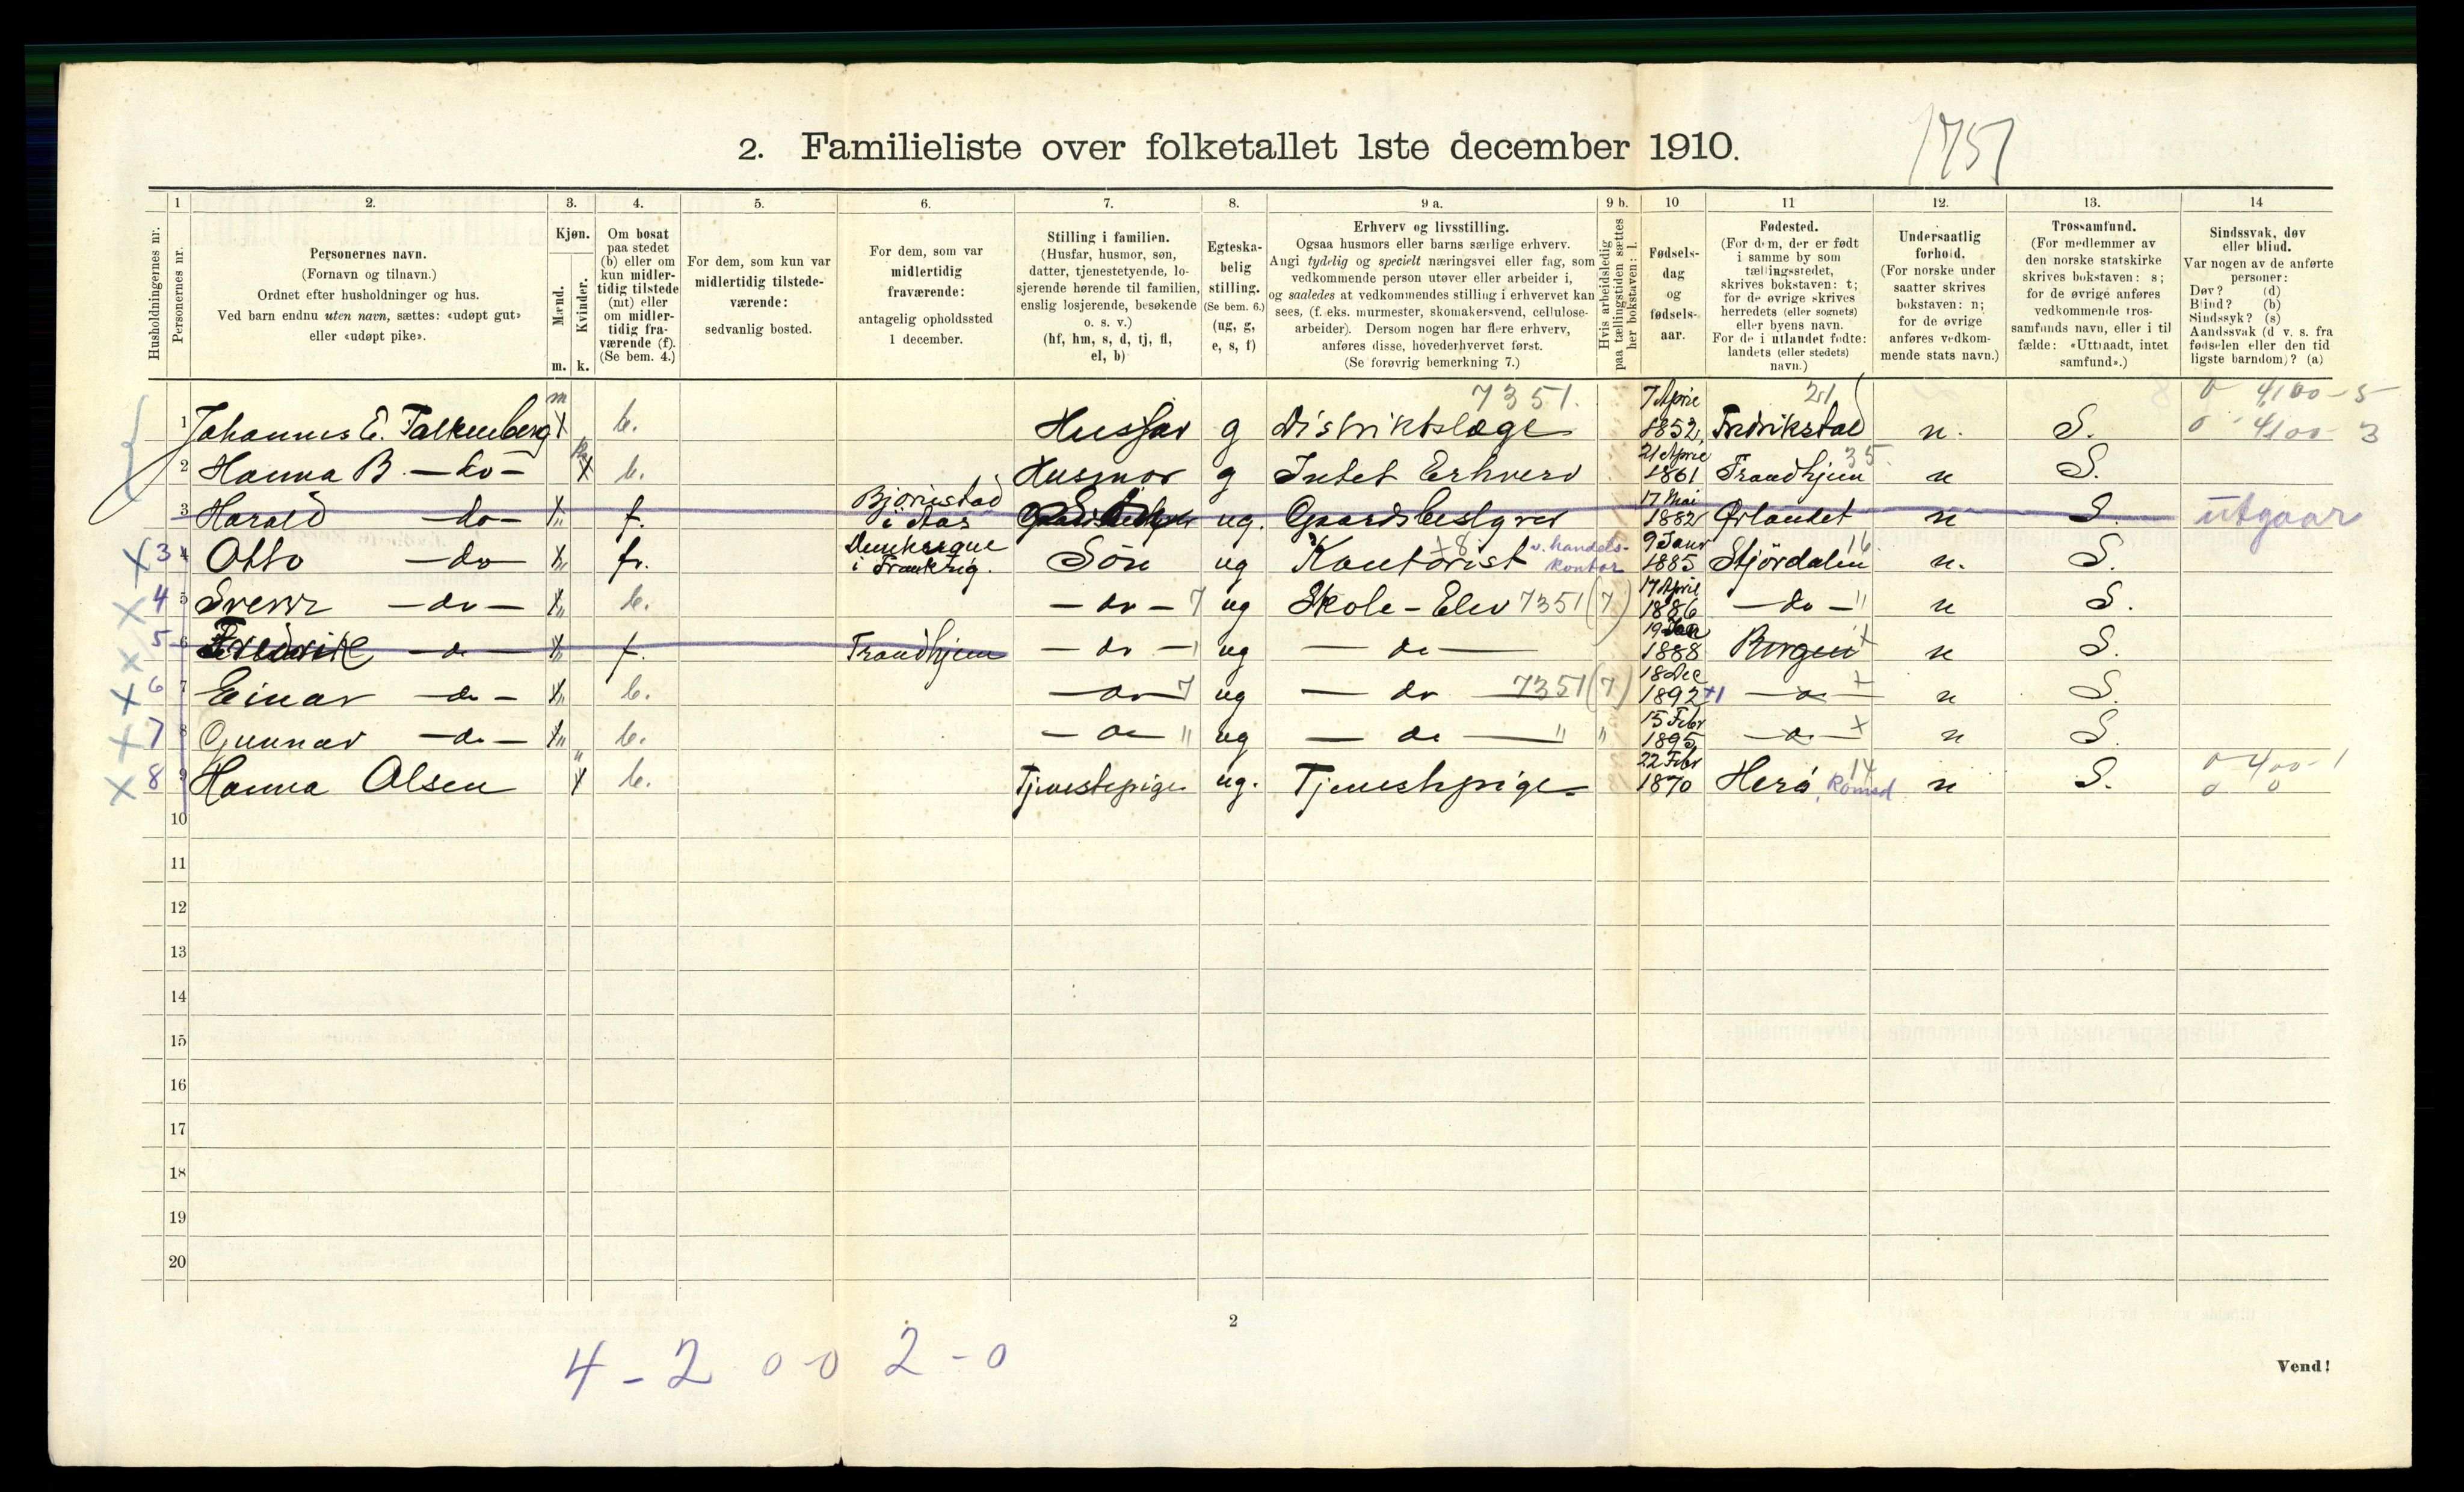 2. Familieliste over folketallet 1ste december 1910.
1757
1 2. 3. 4. 5. 6. 7. 8. 9 a. 9 b. 10 11 12. 13. 14
Husholdningernes nr.
Personernes nr.
Personernes navn.
(Fornavn og tilnavn.)
Ordnet efter husholdninger og hus.
Ved barn endnu uten navn, sættes: «udøpt gut»
eller «udøpt pike».
Kjøn.
Mænd.
Kvinder.
m. k.
Om bosat
paa stedet
(b) eller om
kun midler-
tidig tilstede
(mt) eller
om midler-
tidig fra-
værende (f).
(Se bem. 4.)
For dem, som kun var
midlertidig tilstede-
værende:
sedvanlig bosted.
For dem, som var
midlertidig
fraværende:
antagelig opholdssted
1 december.
Stilling i familien.
(Husfar, husmor, søn,
datter, tjenestetyende, lo-
sjerende hørende til familien,
enslig losjerende, besøkende
o. s. v.)
(hf, hm, s, d, tj, fl,
el, b)
Egteska-
belig
stilling.
(Se bem. 6.)
(ug, g,
e, s, f)
Erhverv og livsstilling.
Ogsaa husmors eller barns særlige erhverv.
Angi tydelig og specielt næringsvei eller fag, som
vedkommende person utøver eller arbeider i,
og saaledes at vedkommendes stilling i erhvervet kan
sees, (f. eks. murmester, skomakersvend, cellulose-
arbeider). Dersom nogen har flere erhverv,
anføres disse, hovederhvervet først.
(Se forøvrig bemerkning 7.)
Hvis arbeidsledig
paa tællingstiden sættes
her bokstaven: l.
Fødsels-
dag
og
fødsels-
aar.
Fødested.
(For dem, der er født
i samme by som
tællingsstedet,
skrives bokstaven: t;
for de øvrige skrives
herredets (eller sognets)
eller byens navn.
For de i utlandet fødte:
landets (eller stedets)
navn.)
Undersaatlig
forhold.
(For norske under
saatter skrives
bokstaven: n;
for de øvrige
anføres vedkom-
mende stats navn.)
Trossamfund.
(For medlemmer av
den norske statskirke
skrives bokstaven: s;
for de øvrige anføres
vedkommende tros-
samfunds navn, eller i til
fælde: «Uttraadt, intet
samfund».)
Sindssvak, døv
eller blind.
Var nogen av de anførte
personer:
Døv? (d)
Blind? (b)
Sindssyk? (s)
Aandssvak (d v. s. fra
fødselen eller den tid
ligste barndom)? (a)
m 7351. 7 April 21 0 4100-5
1 Johannes E. Falkenberg X b. Husfar g Distriktslæge 1852, Fredrikstad n. S. 0 4100-3
k 21 April 35
2 Hanna B. — do — X b. Husmor g Intet Erhverv 1861 Trondhjem n S.
Bjørnstad 17 Mai
3 Harald — do — X f. i Aas Søn ug. Gaardsbestyrer 1882 Ørlandet n S. utgaar
Dunkerque +8 v. handels- 9 Janr 16
X 3 4 Otto — do X fr. i Frankrig. Søn ug Kontorist kontor 1885 Stjördalen n. S.
17 April
X 4 5 Sverr — do — X b. — do — 7 ug Skole-Elev 7351 (7) 1886 — do — " n S.
19
X 5 6 Fredrik — do — X f. Trondhjem — do — ug — do — 1888 Bergen + n S.
18 Dec
X 6 7 Einar — do — X b. — do — 7 ug — do — 7351 (7) 1892 +1 — do — + n S.
15 Febr
X 7 8 Gunnar — do — X b. — do — " ug — do — " " 1895 — do — + n S.
22 Febr 14 0 400-1
X 8 9 Hanna Olsen X b. Tjenestepige ug. Tjenestepige 1870 Herö, Romsd n S. 0 0
10
11
12
13
14
15
16
17
18
19
20
2
4 - 2 0 - 0 2 - 0
Vend!